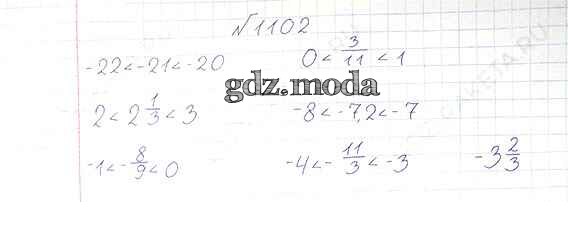 №1102
-22 < -21 < -20
0 < 3/11 < 1
gdz.moda
2 < 2 1/3 < 3
-8 < -7,2 < -7
-1 < -8/9 < 0
-4 < -11/3 < -3
-3 2/3